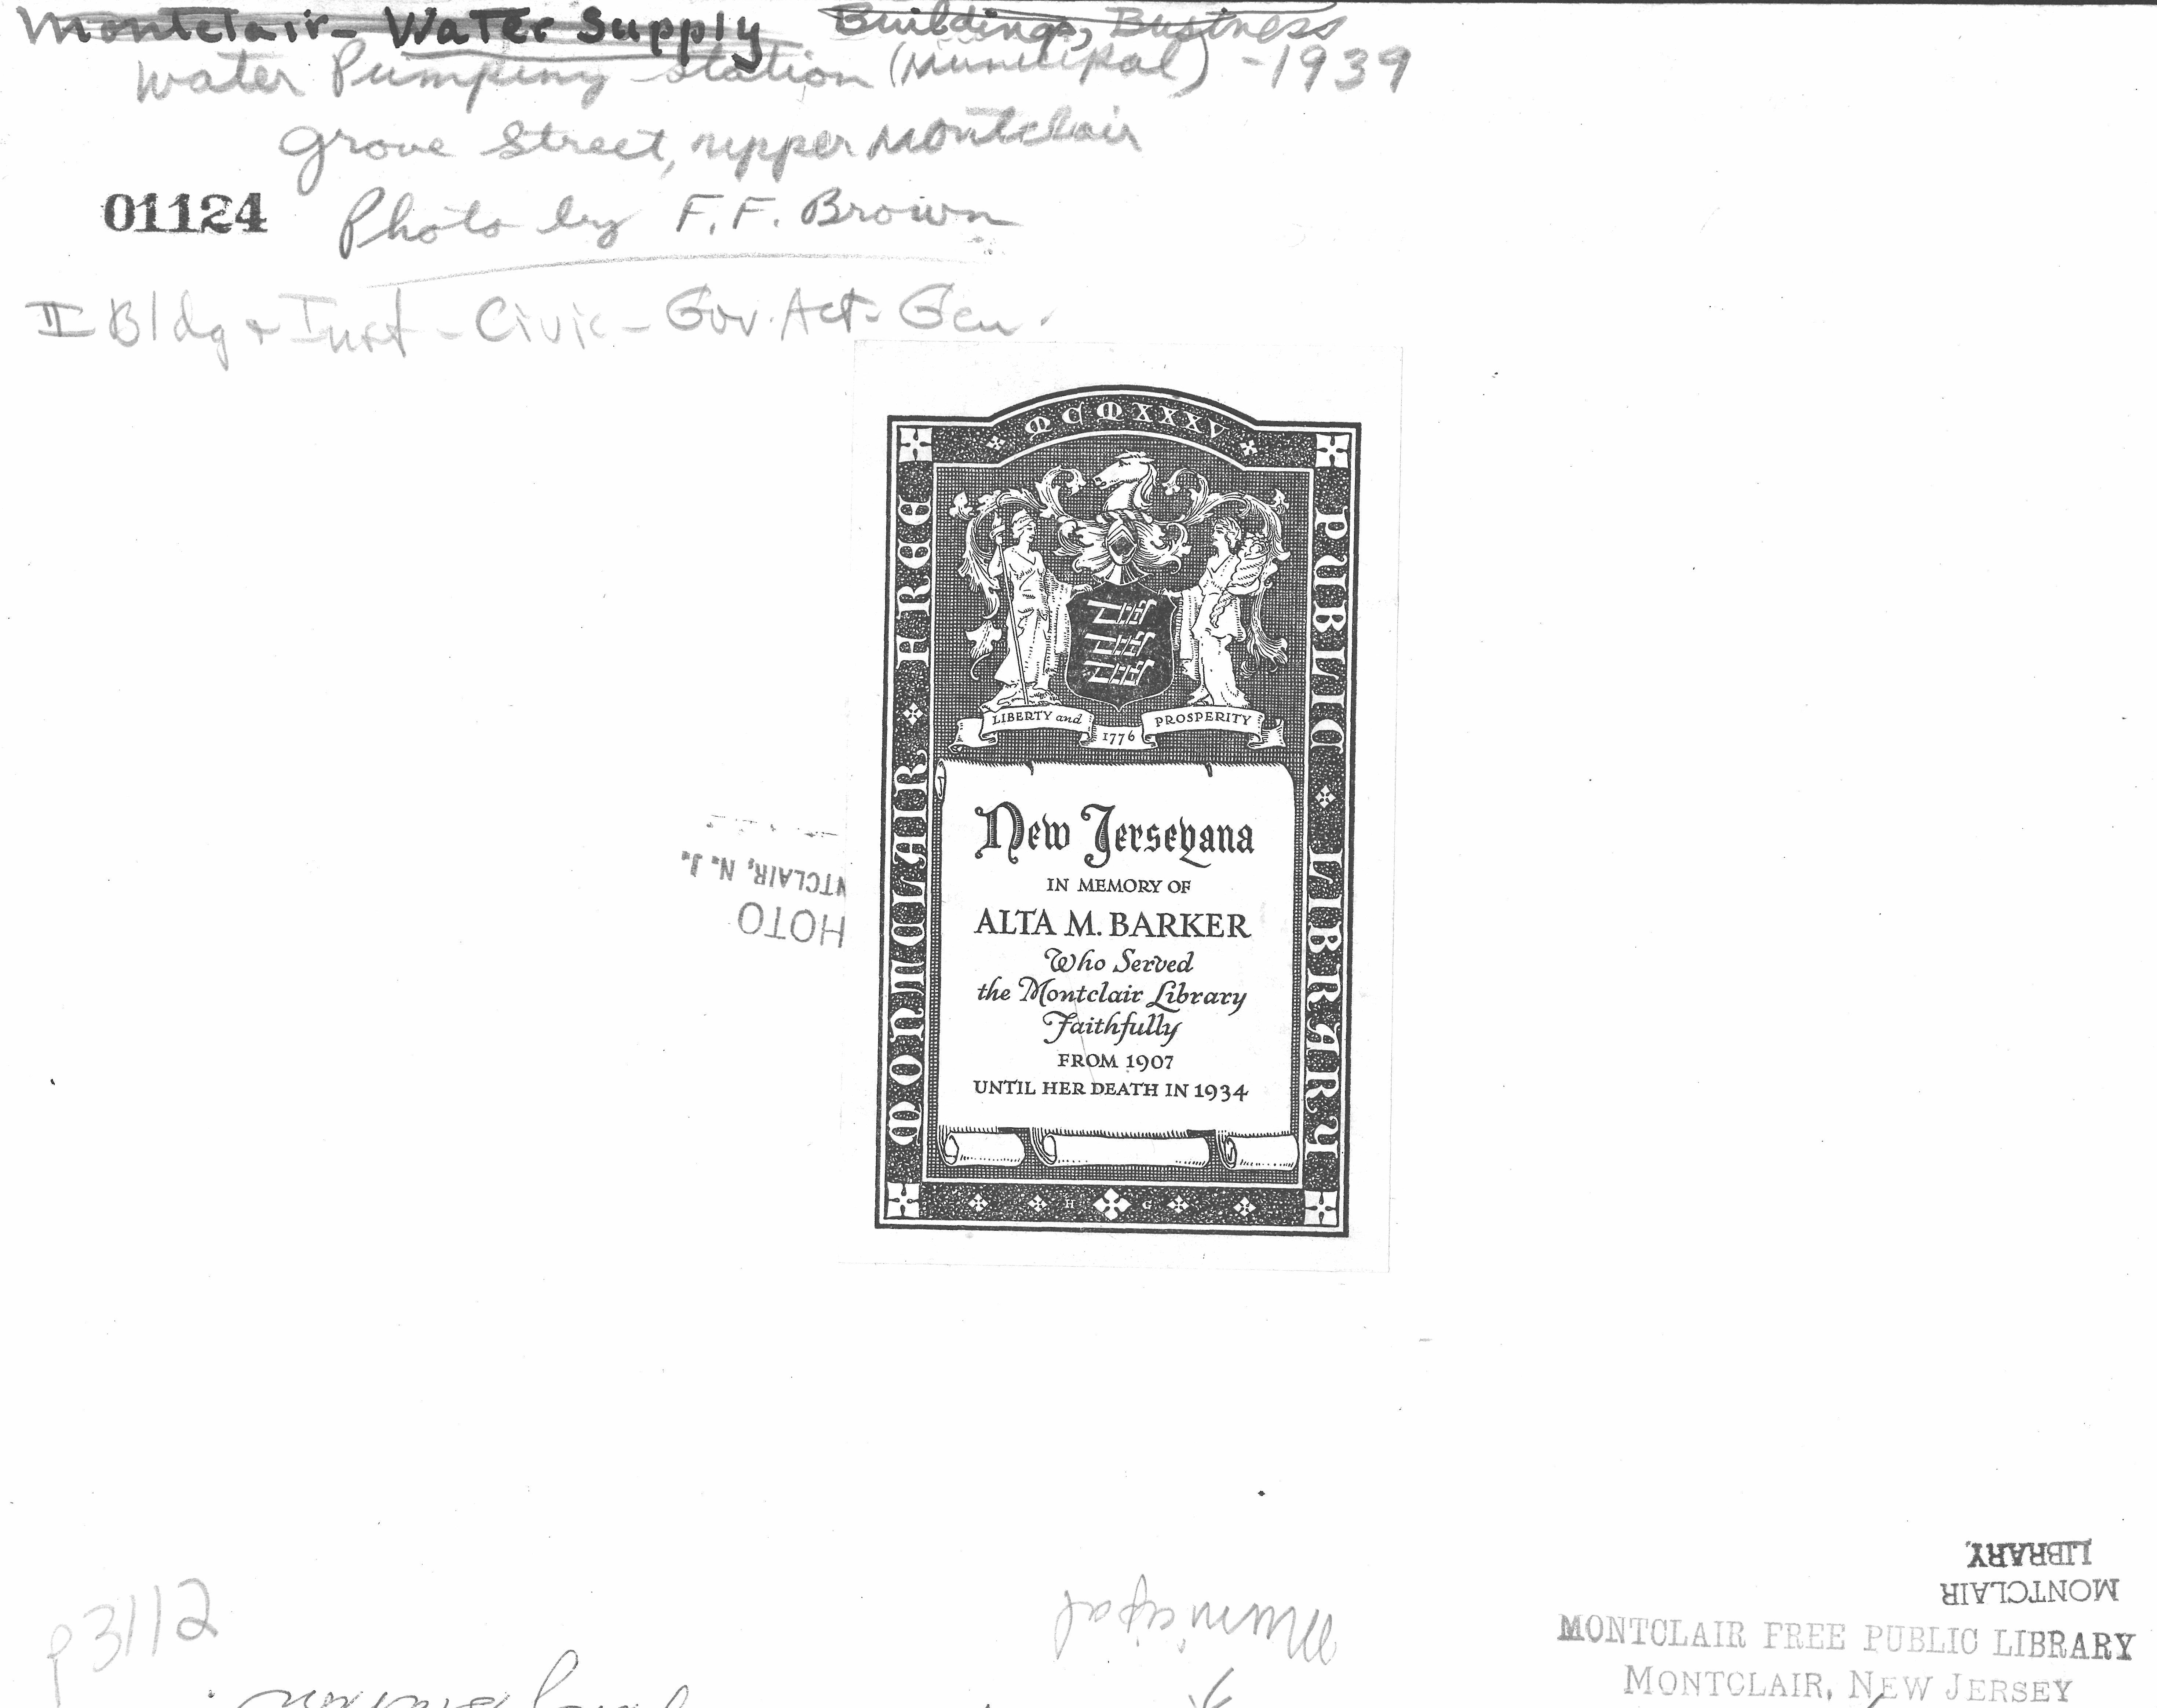 Montclair - Water Supply Buildings, Business
Water Pumping Station (Municipal) - 1939
Grove Street, Upper Montclair
01124 Photo by F. F. Brown
II Bldg & Inst - Civic - Gov. Act. Gen.
MCMXXXV
MONTCLAIR FREE
PUBLIC LIBRARY
LIBERTY and PROSPERITY
1776
New Jerseyana
IN MEMORY OF
ALTA M. BARKER
Who Served
the Montclair Library
Faithfully
FROM 1907
UNTIL HER DEATH IN 1934
H G
NTCLAIR, N. J.
HOTO
p3112
Municipal
MONTCLAIR
LIBRARY
MONTCLAIR FREE PUBLIC LIBRARY
MONTCLAIR, NEW JERSEY